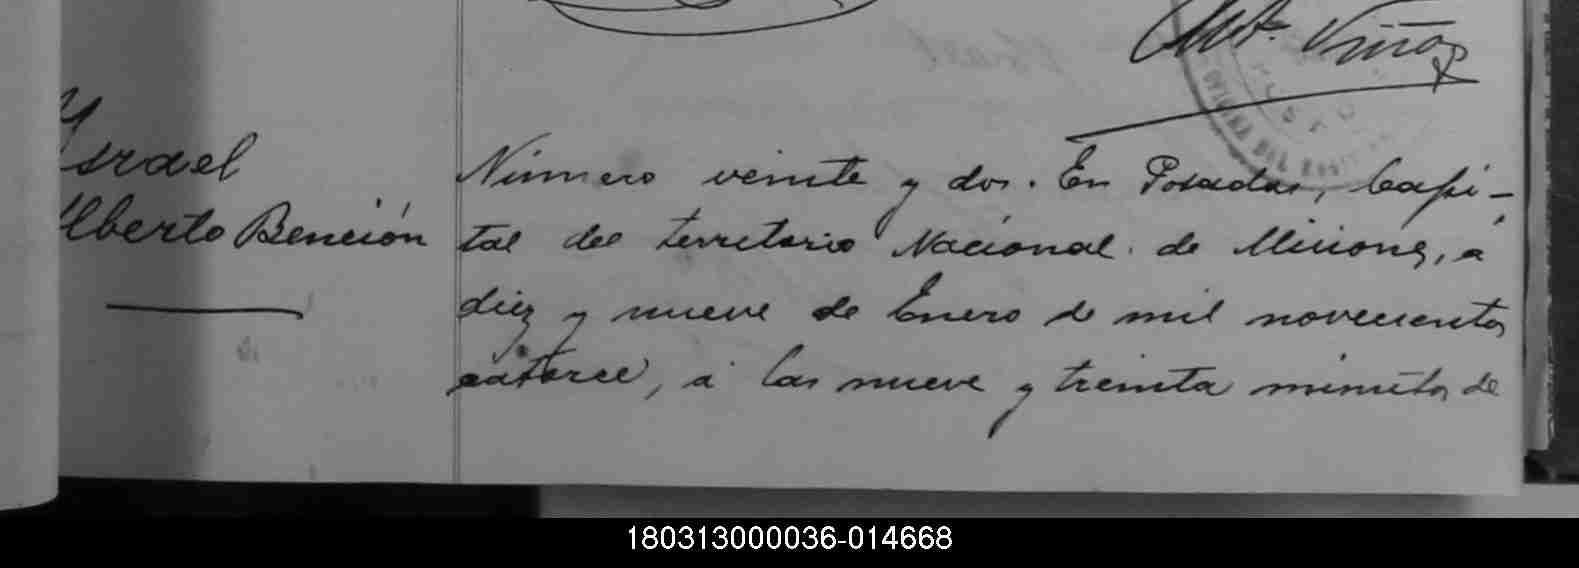 Ant. Viñas
OFICINA DEL
Ysrael
Alberto Bención
Número veinte y dos. En Posadas, Capi-
tal del territorio Nacional de Misiones, á
diez y nueve de Enero de mil novecientos
catorce, á las nueve y treinta minutos de
180313000036-014668